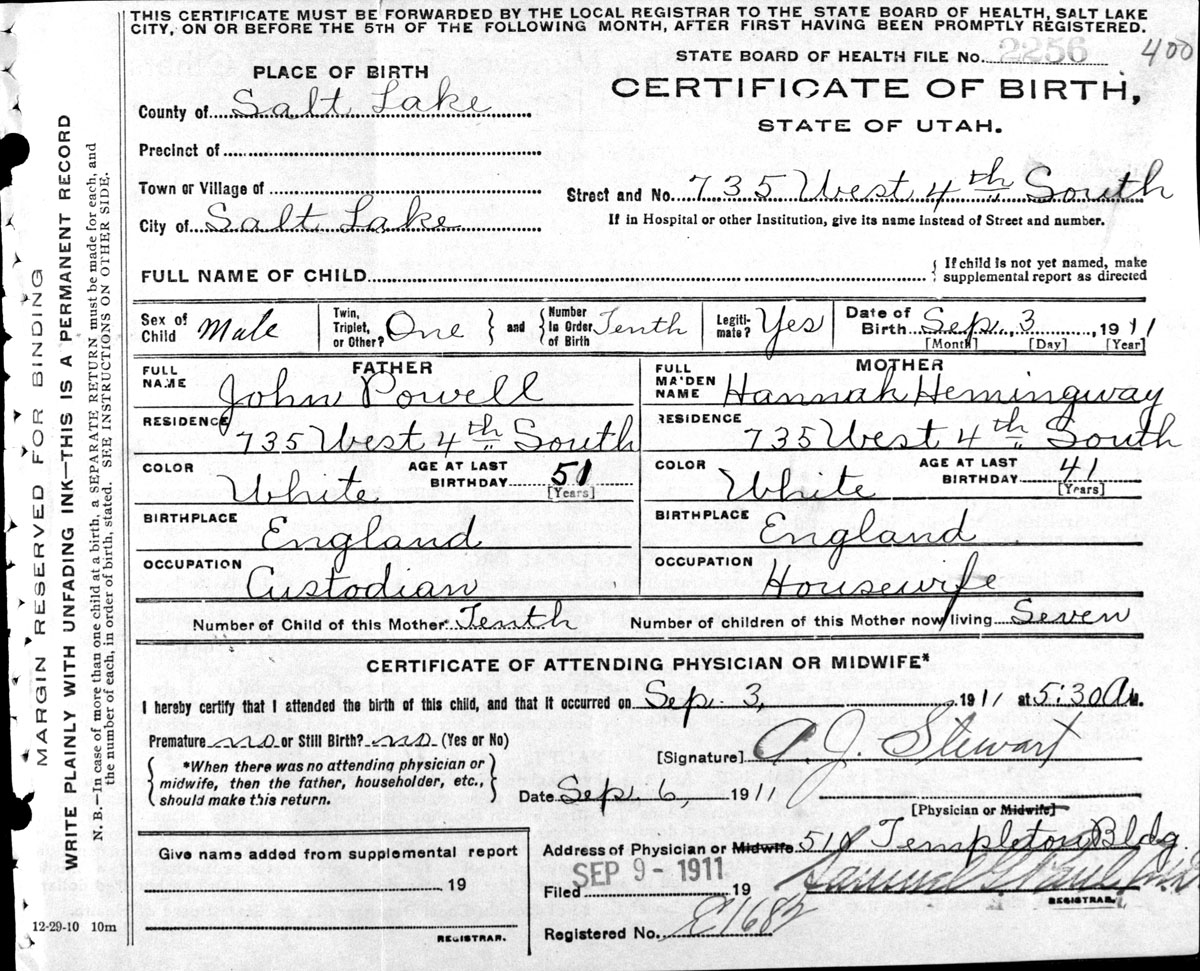 THIS CERTIFICATE MUST BE FORWARDED BY THE LOCAL REGISTRAR TO THE STATE BOARD OF HEALTH, SALT LAKE
CITY, ON OR BEFORE THE 5TH OF THE FOLLOWING MONTH, AFTER FIRST HAVING BEEN PROMPTLY REGISTERED.
STATE BOARD OF HEALTH FILE No. 2256 400
PLACE OF BIRTH
CERTIFICATE OF BIRTH,
STATE OF UTAH.
County of Salt Lake
Precinct of
Town or Village of
Street and No. 735 West 4th South
City of Salt Lake
If in Hospital or other Institution, give its name instead of Street and number.
FULL NAME OF CHILD
If child is not yet named, make
supplemental report as directed
Sex of Child Male
Twin, Triplet, or Other? One
and Number In Order of Birth Tenth
Legitimate? Yes
Date of Birth Sep. 3, 1911
[Month] [Day] [Year]
FATHER
FULL NAME John Powell
RESIDENCE 735 West 4th South
COLOR White AGE AT LAST BIRTHDAY 51 [Years]
BIRTHPLACE England
OCCUPATION Custodian
MOTHER
FULL MAIDEN NAME Hannah Hemingway
RESIDENCE 735 West 4th South
COLOR White AGE AT LAST BIRTHDAY 41 [Years]
BIRTHPLACE England
OCCUPATION Housewife
Number of Child of this Mother Tenth Number of children of this Mother now living Seven
CERTIFICATE OF ATTENDING PHYSICIAN OR MIDWIFE*
I hereby certify that I attended the birth of this child, and that it occurred on Sep. 3, 1911 at 5:30 A M.
Premature no or Still Birth? no (Yes or No)
[Signature] A. J. Stewart
*When there was no attending physician or
midwife, then the father, householder, etc.,
should make this return.
Date Sep. 6, 1911
[Physician or Midwife]
Address of Physician or Midwife 518 Templeton Bldg.
Give name added from supplemental report
19
REGISTRAR.
Filed SEP 9 - 1911 19
REGISTRAR.
Registered No. C1682
12-29-10 10m
MARGIN RESERVED FOR BINDING
WRITE PLAINLY WITH UNFADING INK—THIS IS A PERMANENT RECORD
N. B.—In case of more than one child at a birth, a SEPARATE RETURN must be made for each, and
the number of each, in order of birth, stated. SEE INSTRUCTIONS ON OTHER SIDE.